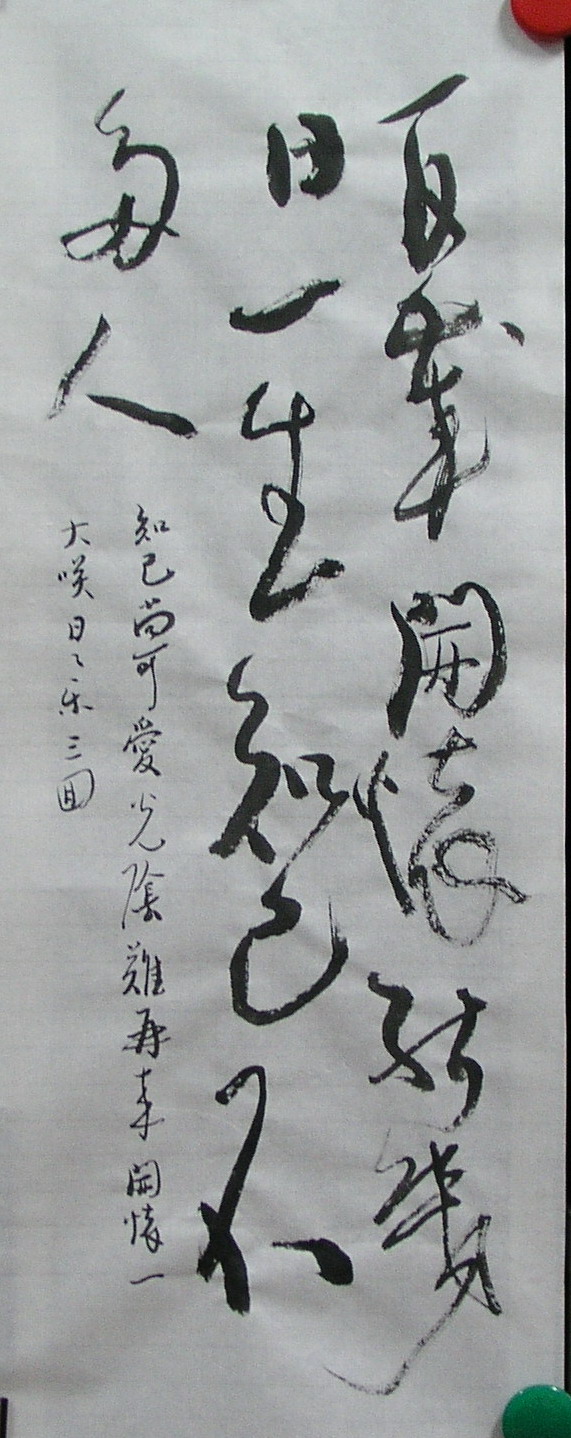 百歲開懷能幾
日一生知己不
多人
知己尚可愛光陰難再來開懷一
大咲日々乐三囬